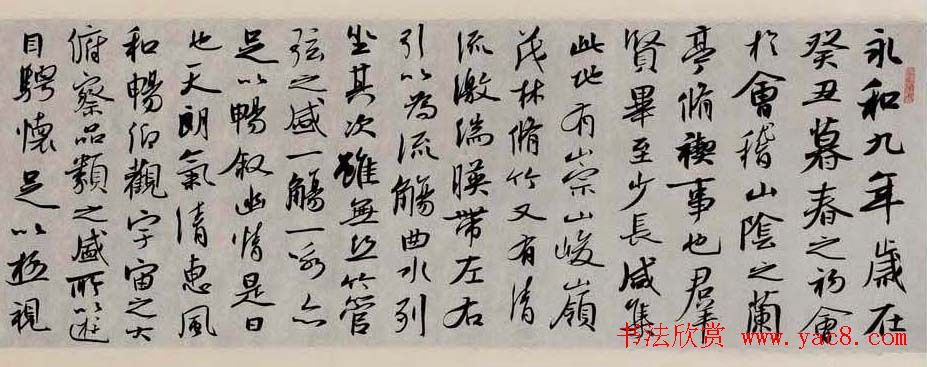 永和九年歲在
癸丑暮春之初會
於會稽山陰之蘭
亭脩禊事也羣
賢畢至少長咸集
此地有崇山峻嶺
茂林脩竹又有清
流激湍暎帶左右
引以為流觴曲水列
坐其次雖無絲竹管
弦之盛一觴一詠亦
足以暢叙幽情是日
也天朗氣清惠風
和暢仰觀宇宙之大
俯察品類之盛所以遊
目騁懷足以極視
书法欣赏 www.yac8.com